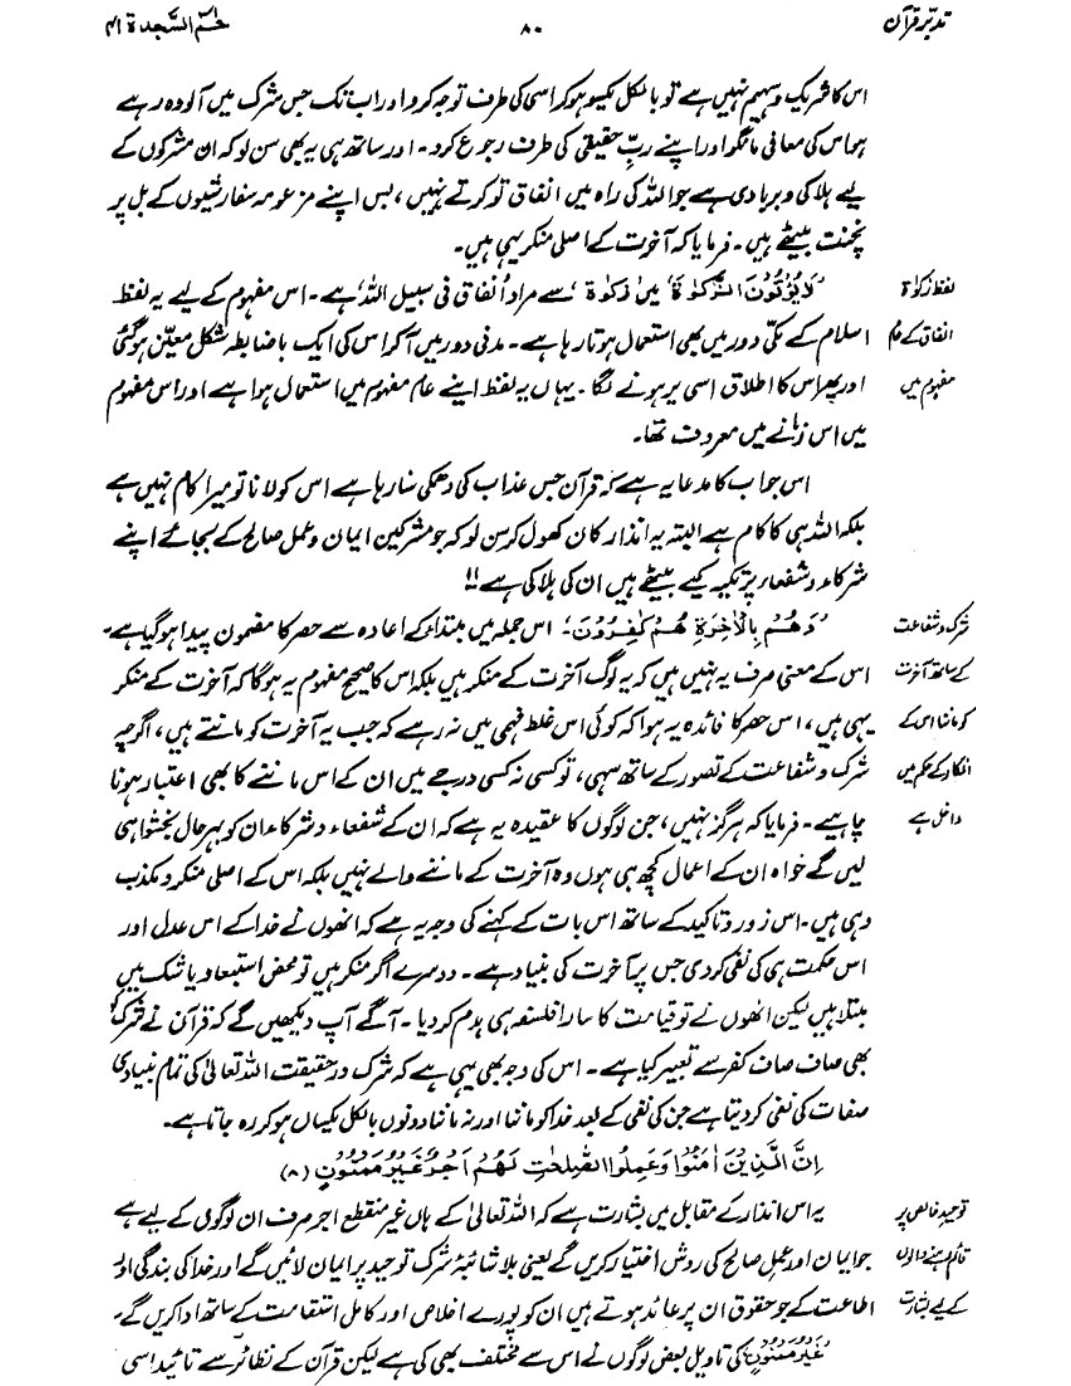 تدبّرِ قرآن ۸۰ حٰمٓ السَّجدۃ ۴۱
اس کا شریک و سہیم نہیں ہے تو بالکل یکسو ہو کر اسی کی طرف توجہ کرو اور اب تک جس شرک میں آلودہ رہے
ہو اس کی معافی مانگو اور اپنے ربِّ حقیقی کی طرف رجوع کرو۔ اور ساتھ ہی یہ بھی سن لو کہ ان مشرکوں کے
لیے ہلاکی و بربادی ہے جو اللہ کی راہ میں انفاق تو کرتے نہیں، بس اپنے مزعومہ سفارشیوں کے بل پر
نچنت بیٹھے ہیں۔ فرمایا کہ آخرت کے اصلی منکر یہی ہیں۔
لفظ زکوٰۃ 'لَا يُؤْتُوْنَ الزَّكٰوةَ' میں 'زکوٰۃ' سے مراد 'انفاق فی سبیل اللہ' ہے۔ اس مفہوم کے لیے یہ لفظ
انفاق کے عام اسلام کے مکّی دور میں بھی استعمال ہوتا رہا ہے۔ مدنی دور میں آ کر اس کی ایک باضابطہ شکل معیّن ہو گئی
مفہوم میں اور پھر اس کا اطلاق اسی پر ہونے لگا۔ یہاں یہ لفظ اپنے عام مفہوم میں استعمال ہوا ہے اور اس مفہوم
میں اس زمانے میں معروف تھا۔
اس جواب کا مدعا یہ ہے کہ قرآن جس عذاب کی دھمکی سنا رہا ہے اس کو لانا تو میرا کام نہیں ہے
بلکہ اللہ ہی کا کام ہے البتہ یہ انذار کان کھول کر سن لو کہ جو مشرکین ایمان و عمل صالح کے بجائے اپنے
شرکاء و شفعاء پر تکیہ کیے بیٹھے ہیں ان کی ہلاکی ہے!!
شرک و شفاعت 'وَهُمْ بِالْاٰخِرَةِ هُمْ كٰفِرُوْنَ'؛ اس جملہ میں مبتداء کے اعادہ سے حصر کا مضمون پیدا ہو گیا ہے۔
کے ساتھ آخرت اس کے معنی صرف یہ نہیں ہیں کہ یہ لوگ آخرت کے منکر ہیں بلکہ اس کا صحیح مفہوم یہ ہوگا کہ آخرت کے منکر
کو ماننا اس کے یہی ہیں، اس حصر کا فائدہ یہ ہوا کہ کوئی اس غلط فہمی میں نہ رہے کہ جب یہ آخرت کو مانتے ہیں، اگرچہ
انکار کے حکم میں شرک و شفاعت کے تصور کے ساتھ سہی، تو کسی نہ کسی درجے میں ان کے اس ماننے کا بھی اعتبار ہونا
داخل ہے چاہیے۔ فرمایا کہ ہرگز نہیں، جن لوگوں کا عقیدہ یہ ہے کہ ان کے شفعاء و شرکاء ان کو بہرحال بخشوا ہی
لیں گے خواہ ان کے اعمال کچھ ہی ہوں وہ آخرت کے ماننے والے نہیں بلکہ اس کے اصلی منکر و مکذب
وہی ہیں۔ اس زور و تاکید کے ساتھ اس بات کے کہنے کی وجہ یہ ہے کہ انھوں نے خدا کے اس عدل اور
اس حکمت ہی کی نفی کر دی جس پر آخرت کی بنیاد ہے۔ دوسرے اگر منکر ہیں تو محض استبعاد یا شک میں
مبتلا ہیں لیکن انھوں نے تو قیامت کا سارا فلسفہ ہی ہدم کر دیا۔ آگے آپ دیکھیں گے کہ قرآن نے شرک کو
بھی صاف صاف کفر سے تعبیر کیا ہے۔ اس کی وجہ بھی یہی ہے کہ شرک درحقیقت اللہ تعالیٰ کی تمام بنیادی
صفات کی نفی کر دیتا ہے جن کی نفی کے بعد خدا کو ماننا اور نہ ماننا دونوں بالکل یکساں ہو کر رہ جاتا ہے۔
اِنَّ الَّذِيْنَ اٰمَنُوْا وَعَمِلُوا الصّٰلِحٰتِ لَهُمْ اَجْرٌ غَيْرُ مَمْنُوْنٍ (۸)
توحیدِ خالص پر یہ اس انذار کے مقابل میں بشارت ہے کہ اللہ تعالیٰ کے ہاں غیر منقطع اجر صرف ان لوگوں کے لیے ہے
قائم رہنے والوں جو ایمان اور عمل صالح کی روش اختیار کریں گے یعنی بلا شائبۂ شرک توحید پر ایمان لائیں گے اور خدا کی بندگی اور
کے لیے بشارت اطاعت کے جو حقوق ان پر عائد ہوتے ہیں ان کو پورے اخلاص اور کامل استقامت کے ساتھ ادا کریں گے۔
'غَيْرُ مَمْنُوْنٍ' کی تاویل بعض لوگوں نے اس سے مختلف بھی کی ہے لیکن قرآن کے نظائر سے تائید اسی